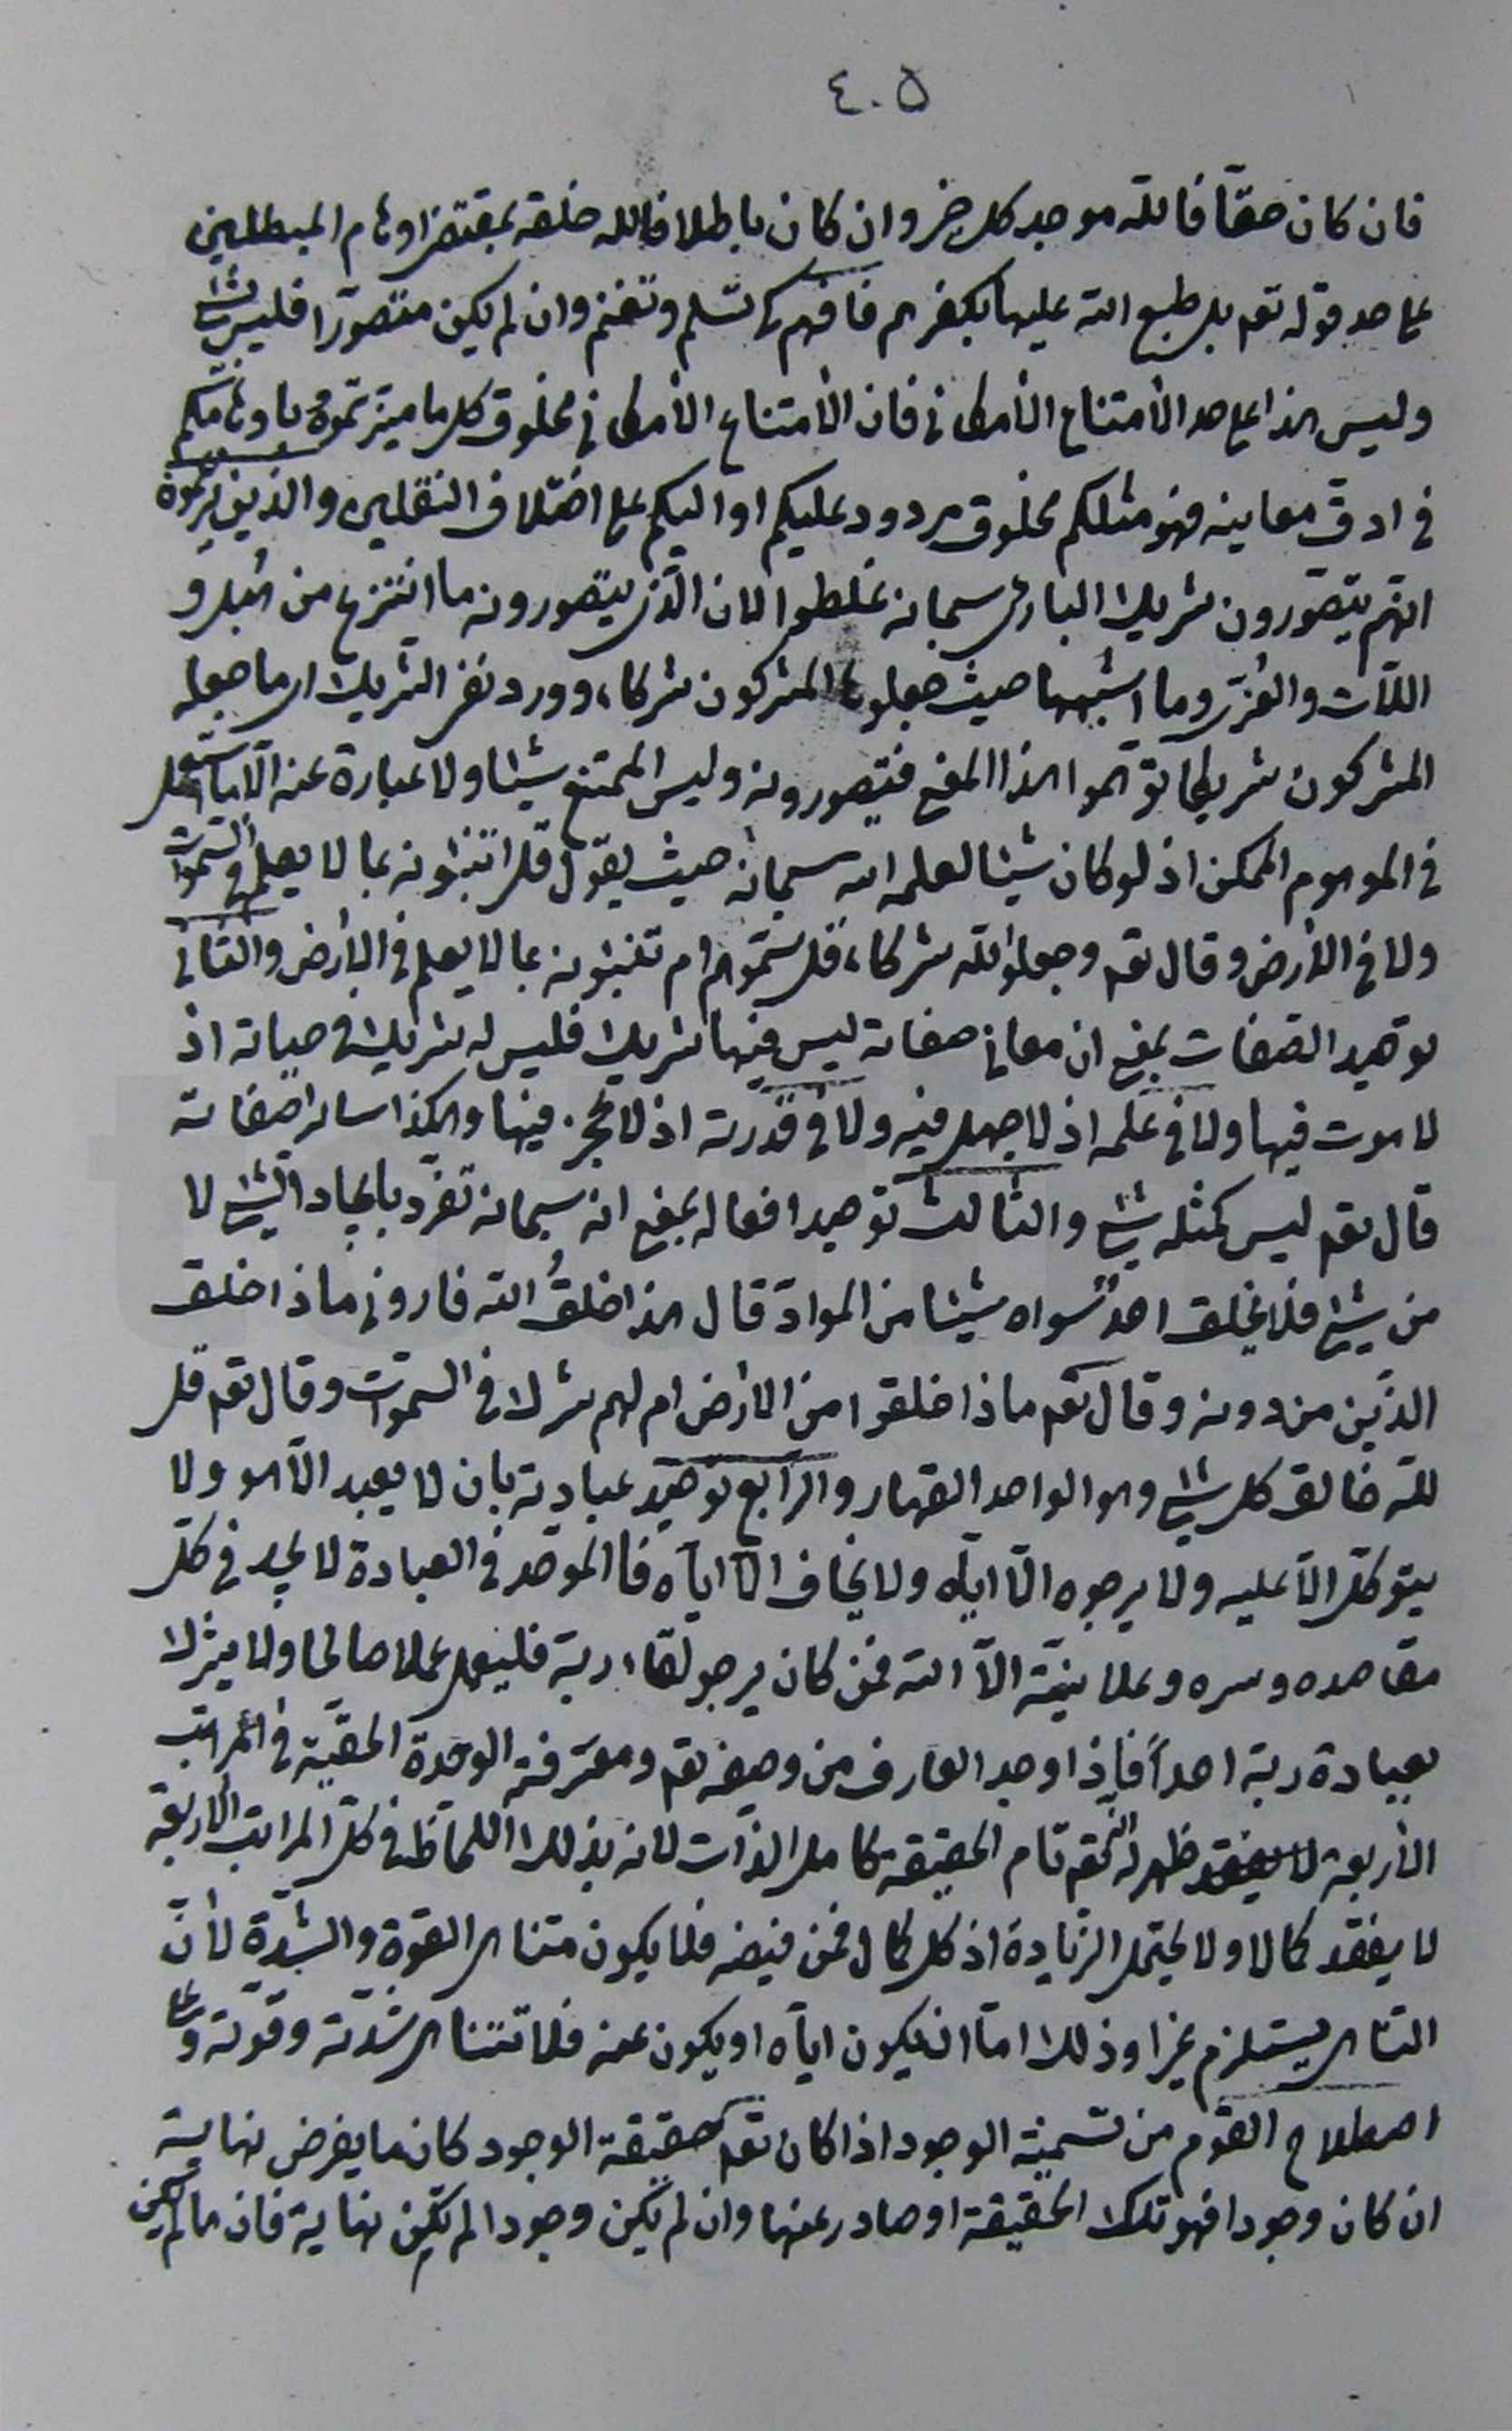 ٤٠٥
فان كان حقّا فاللّه موجد كل خير وان كان باطلا فالله خلقه بمقتضى اوهام المبطلين
على حد قوله تعم بل طبع الله عليها بكفرهم فافهم كى تسلم وتغنم وان لم يكن متصوّرا فليس بشئ
وليس هذا على حد الأمتناع الأمكانى فان الأمتناع الأمكانى مخلوق كل ما ميّزتموه باوهامكم
فى ادقّ معانيه فهو مثلكم مخلوق مردود عليكم او اليكم على اختلاف النقلين والذين
انهم يتصوّرون شريك البارى سبحانه غلطوا لان الذى يتصورونه ما انتزع من هبل و
اللّات والعزّى وما اشبهها حيث جعلوها المشركون شركاء، وورد نفى الشريك اى ما جعله
المشركون شريكا توهّموا هذا المعنى فتصورونه وليس الممتنع شيئا ولا عبارة عنه الّا ما استعمل
فى الموهوم الممكن اذ لو كان شيئا لعلمه الله سبحانه حيث يقول قل اتنبّئونه بما لا يعلم فى السّموات
ولا فى الأرض وقال تعم وجعلوا للّه شركاء، قل سمّوهم ام تنبئونه بما لا يعلم فى الأرض والثانى
توحيد الصّفات بمعنى ان معانى صفاته ليس فيها شريك فليس له شريك فى حياته اذ
لا موت فيها ولا فى علمه اذ لا جهل فيه ولا فى قدرته اذ لا عجز فيها وهكذا سائر صفاته
قال تعم ليس كمثله شئ والثالث توحيد افعاله بمعنى انه سبحانه تفرّد بايجاد الشئ لا
من شئ فلا يخلق احد سواه شيئا من الموادّ قال هذا خلقُ الله فارونى ماذا خلق
الذّين من دونه وقال تعم ماذا خلقوا من الأرض ام لهم شرك فى السّموات وقال تعم قل
للّه خالق كل شئ وهو الواحد القهار والرّابع توحيد عبادته بان لا يعبد الّا هو ولا
يتوكّل الّا عليه ولا يرجوه الّا ايّاه ولا يخاف الّا ايّاه فاالموحّد فى العبادة لا يجد فى كلّ
مقاصده وسره وعلانيّته الّا الله فمن كان يرجو لقاء ربّه فليعمل عملا صالحا ولا يشرك
بعبادة ربّه احداً فاذا وجد العارف من وصفه تعم ومعرفته الوحدة الحقيّة فى المراتب
الأربعة ظهر له انّه تعم تام الحقيقة كامل الذّات لانه بذلك اللحاظ فى كلّ المراتب الأربعة
لا يفقد كمالا ولا يحتمل الزّيادة اذ كل كمال فمن فيضه فلا يكون متناهى القوة والشدّة لأنّ
التناهى يستلزم غيرا وذلك امّا ان يكون ايّاه او يكون عنه فلا تتناهى شدّته وقوّته وعلى
اصطلاح القوم من تسمية الوجود اذا كان تعم حقيقة الوجود كان ما يفرض نهاية
ان كان وجودا فهو تلك الحقيقة او صادر عنها وان لم يكن وجودا لم تكن نهاية فان ما لم يكن